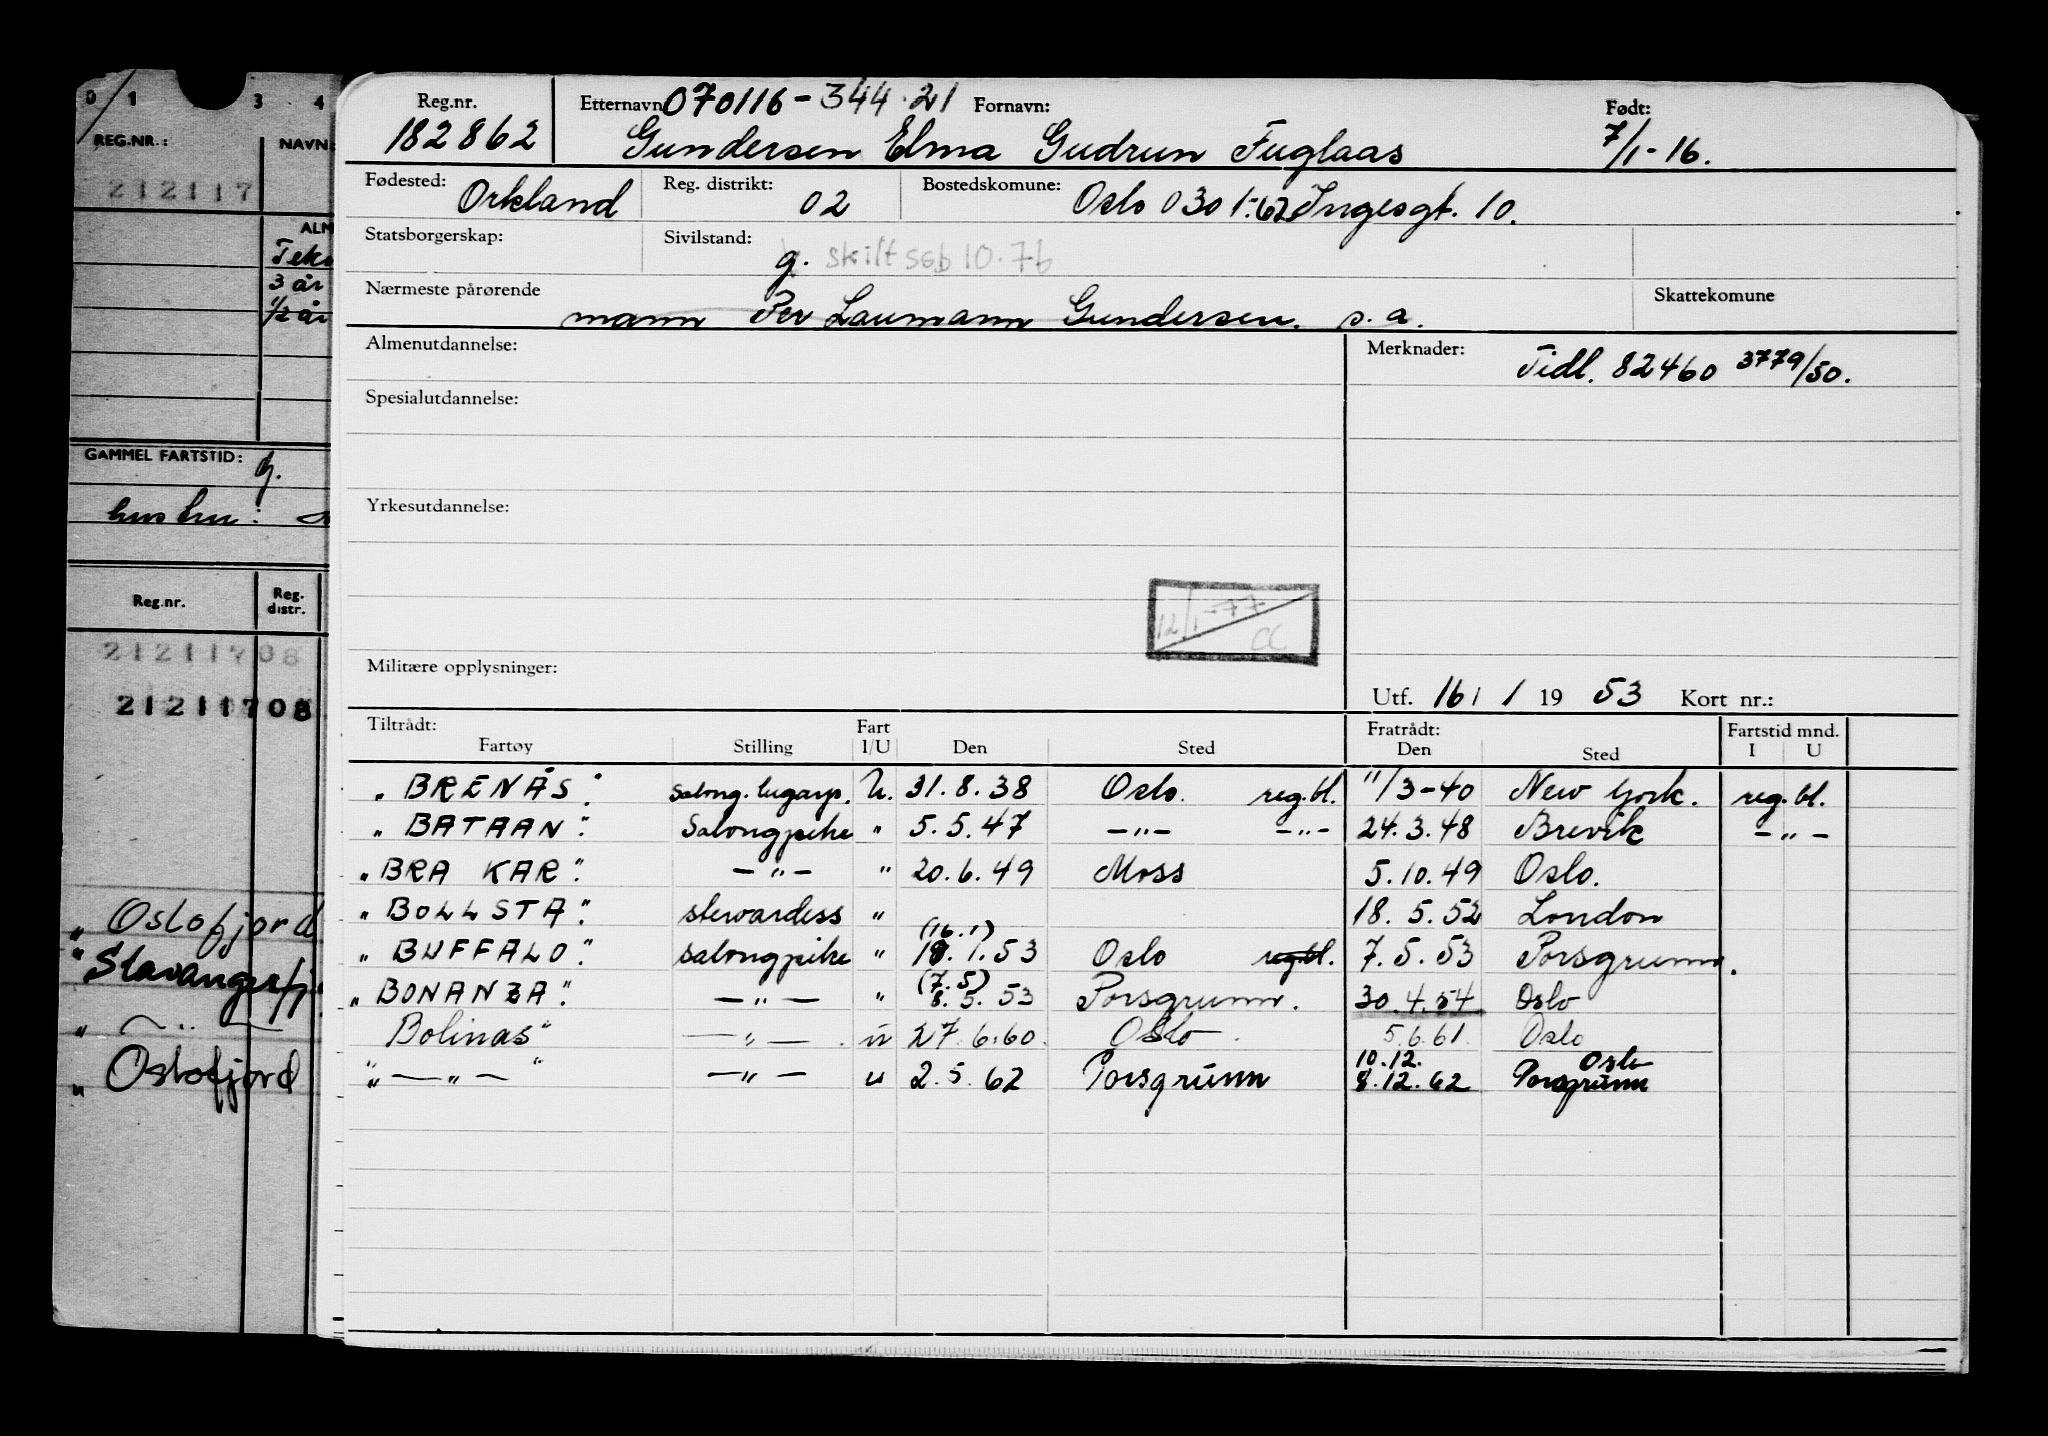 0 1 3 4
REG.NR.: NAVN:
212117
3 år
1/2 år
GAMMEL FARTSTID: g.
Reg.nr. Reg. distr.
21211708
21211708
„ Oslofjord
" Stavangerfj
„ — " —
„ Oslofjord
Reg.nr. Etternavn: 070116-344.21 Fornavn: Født:
182862 Gundersen Elma Gudrun Fuglaas 7/1-16.
Fødested: Orkland Reg. distrikt: 02 Bostedskomune: Oslo 0301-62 Ingesgt. 10.
Statsborgerskap: Sivilstand: g. skilt ssb 10.76
Nærmeste pårørende mann Per Laumann Gundersen. s.a. Skattekomune
Almenutdannelse: Merknader: Tidl. 82460 3779/50.
Spesialutdannelse:
Yrkesutdannelse:
12/1-77 CC
Militære opplysninger:
Utf. 16/1 1953 Kort nr.:
Tiltrådt: Fart Fratrådt: Fartstid mnd.
Fartøy Stilling I/U Den Sted Den Sted I U
„BRENÅS". Salong.lugarp. U. 31.8.38 Oslo. reg.bl. 11/3-40 New York. reg.bl.
„BATAAN". Salongpike " 5.5.47 -"- -"- 24.3.48 Brevik -"-
„BRA KAR". -"- " 20.6.49 Moss 5.10.49 Oslo.
„BOLLSTA". stewardess " 18.5.52 London
(16.1)
„BUFFALO". salongpike " 19.1.53 Oslo reg.bl. 7.5.53 Porsgrunn.
(7.5)
„BONANZA". -"- " 8.5.53 Porsgrunn. 30.4.54 Oslo
Bolinas" -"- u 27.6.60. Oslo 5.6.61. Oslo
10.12. Oslo
„-"-" -"- u 2.5.62 Porsgrunn 8.12.62 Porsgrunn